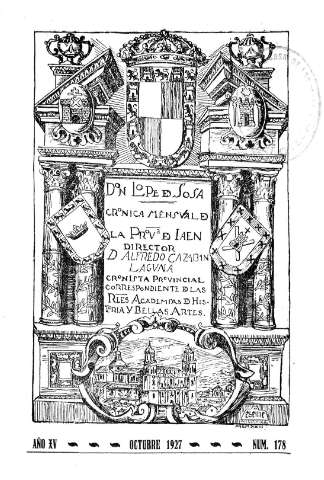 DON LOPE D SOSA
CRONICA MENSVAL D
LA PROVª D IAEN
DIRECTOR
D ALFREDO CAZABAN
LAGUNA
CRONISTA PROVINCIAL
CORRESPONDIENTE D LAS
RLES ACADEMIAS D HIS-
TORIA Y BELLAS ARTES.
AÑO XV OCTUBRE 1927 NUM. 178